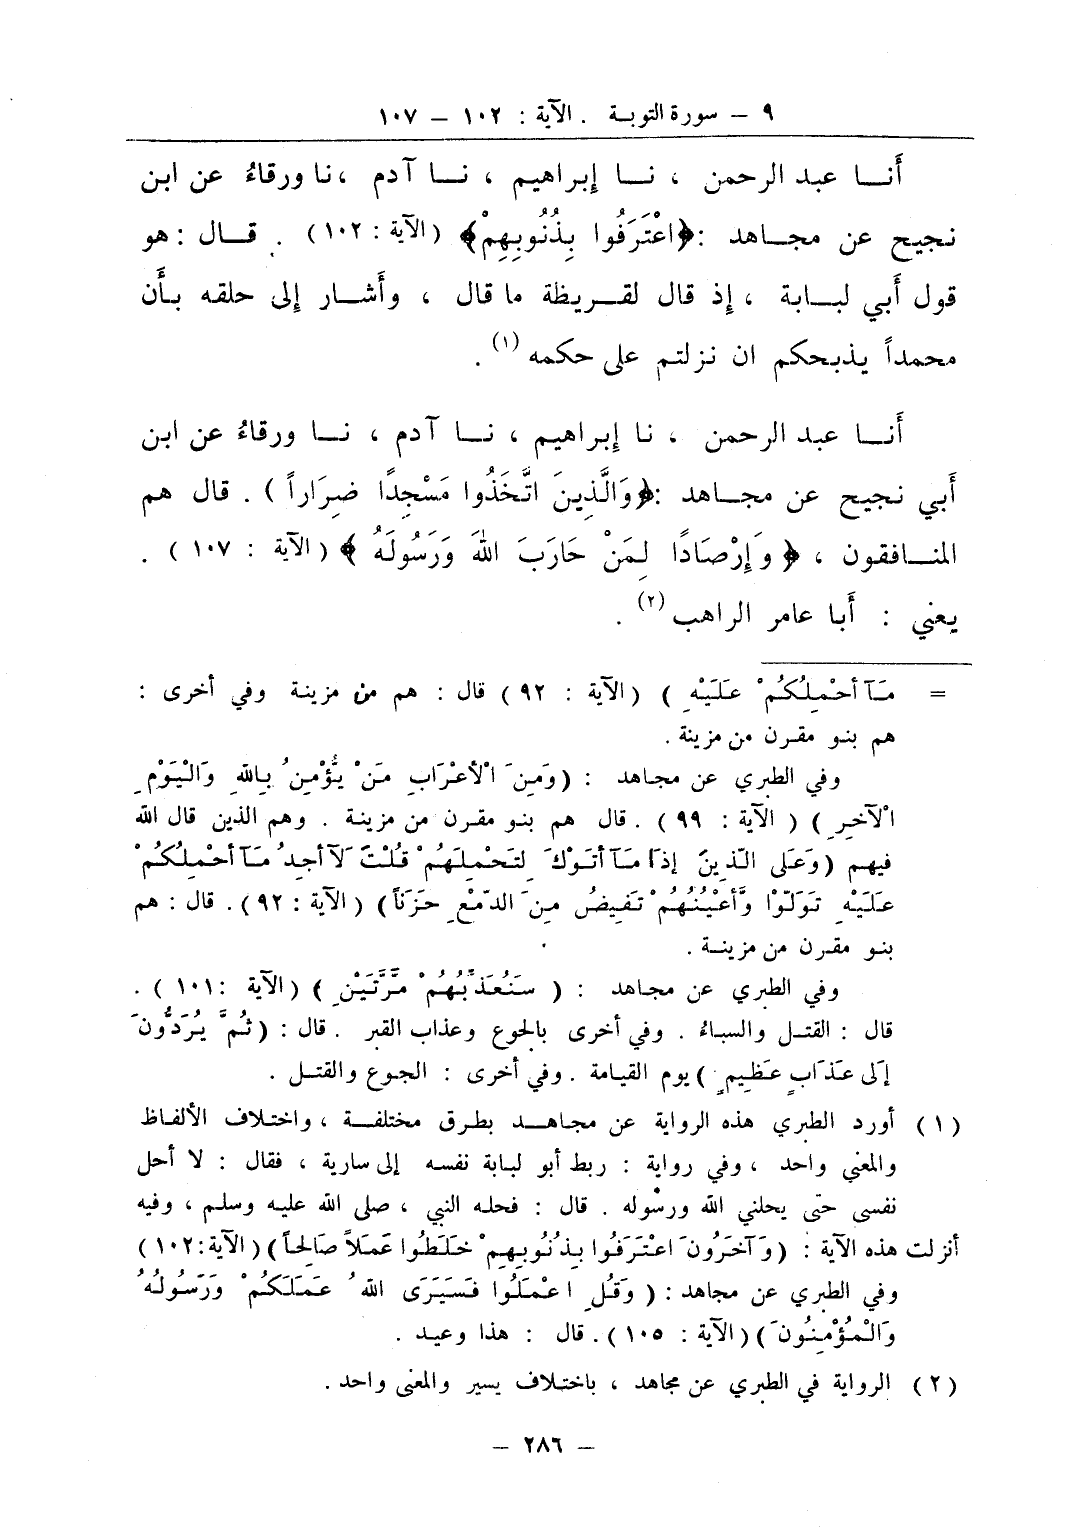 ٩ – سورة التوبة . الآية : ١٠٢ – ١٠٧
أَنا عبد الرحمن ، نا إبراهيم ، نا آدم ،نا ورقاءُ عن ابن
نجيح عن مجاهد :﴿اعْتَرَفُوا بِذُنُوبِهِمْ﴾ (الآية : ١٠٢) . قال : هو
قول أَبي لبابة ، إذ قال لقريظة ما قال ، وأَشار إلى حلقه بأَن
محمداً يذبحكم ان نزلتم على حكمه (١) .
أَنا عبد الرحمن ، نا إبراهيم ، نا آدم ، نا ورقاءُ عن ابن
أَبي نجيح عن مجاهد :﴿وَالَّذِينَ اتَّخَذُوا مَسْجِدًا ضِرَاراً ) . قال هم
المنافقون ، ﴿ وَإِرْصَادًا لِمَنْ حَارَبَ اللهَ وَرَسُولَهُ ﴾ (الآية : ١٠٧ ) .
يعني : أَبا عامر الراهب (٢) .
= مَآ أحْمِلُكُمْ عَلَيْهِ ) (الآية : ٩٢) قال : هم من مزينة وفي أخرى :
هم بنو مقرن من مزينة .
وفي الطبري عن مجاهد : (وَمِنَ الْأعْرَابِ مَنْ يُؤْمِنُ بِاللهِ وَالْيَوْمِ
الْآخِرِ ) ( الآية : ٩٩ ) . قال هم بنو مقرن من مزينة . وهم الذين قال الله
فيهم (وَعَلى الّذِينَ إذَا مَآ أتَوْكَ لِتَحْمِلَهُمْ قُلْتَ لَآ أجِدُ مَآ أحْمِلُكُمْ
عَلَيْهِ تَوَلّوْا وَّأعْيُنُهُمْ تَفِيضُ مِنَ الدّمْعِ حَزَنَاً) ( الآية : ٩٢) . قال : هم
بنو مقرن من مزينة .
وفي الطبري عن مجاهد : ( سَنُعَذِّبُهُمْ مَّرَّتَيْنِ ) (الآية :١٠١ ) .
قال : القتل والسباءُ . وفي أخرى بالجوع وعذاب القبر . قال : (ثُمَّ يُرَدُّونَ
إلَى عَذَابٍ عَظِيمٍ ) يوم القيامة . وفي أخرى : الجوع والقتل .
(١) أورد الطبري هذه الرواية عن مجاهد بطرق مختلفة ، واختلاف الألفاظ
والمعنى واحد ، وفي رواية : ربط أبو لبابة نفسه إلى سارية ، فقال : لا أحل
نفسي حتى يحلني الله ورسوله . قال : فحله النبي ، صلى الله عليه وسلم ، وفيه
أنزلت هذه الآية : (وَآخَرُونَ اعْتَرَفُوا بِذُنُوبِهِمْ خَلَطُوا عَمَلاً صَالِحَاً) (الآية:١٠٢)
وفي الطبري عن مجاهد : ( وَقُلِ اعْمَلُوا فَسَيَرَى اللهُ عَمَلَكُمْ وَرَسُولُهُ
وَالْمُؤْمِنُونَ ) (الآية : ١٠٥) . قال : هذا وعيد .
(٢) الرواية في الطبري عن مجاهد ، باختلاف يسير والمعنى واحد .
– ٢٨٦ –